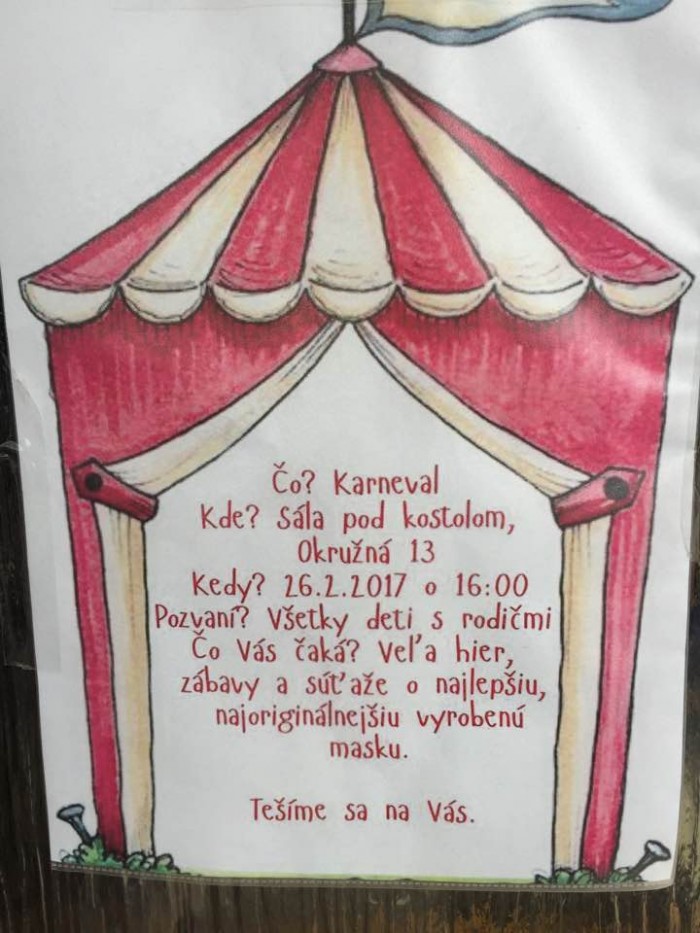 Čo? Karneval
Kde? Sála pod kostolom,
Okružná 13
Kedy? 26.2.2017 o 16:00
Pozvaní? Všetky deti s rodičmi
Čo Vás čaká? Veľa hier,
zábavy a súťaže o najlepšiu,
najoriginálnejšiu vyrobenú
masku.
Tešíme sa na Vás.